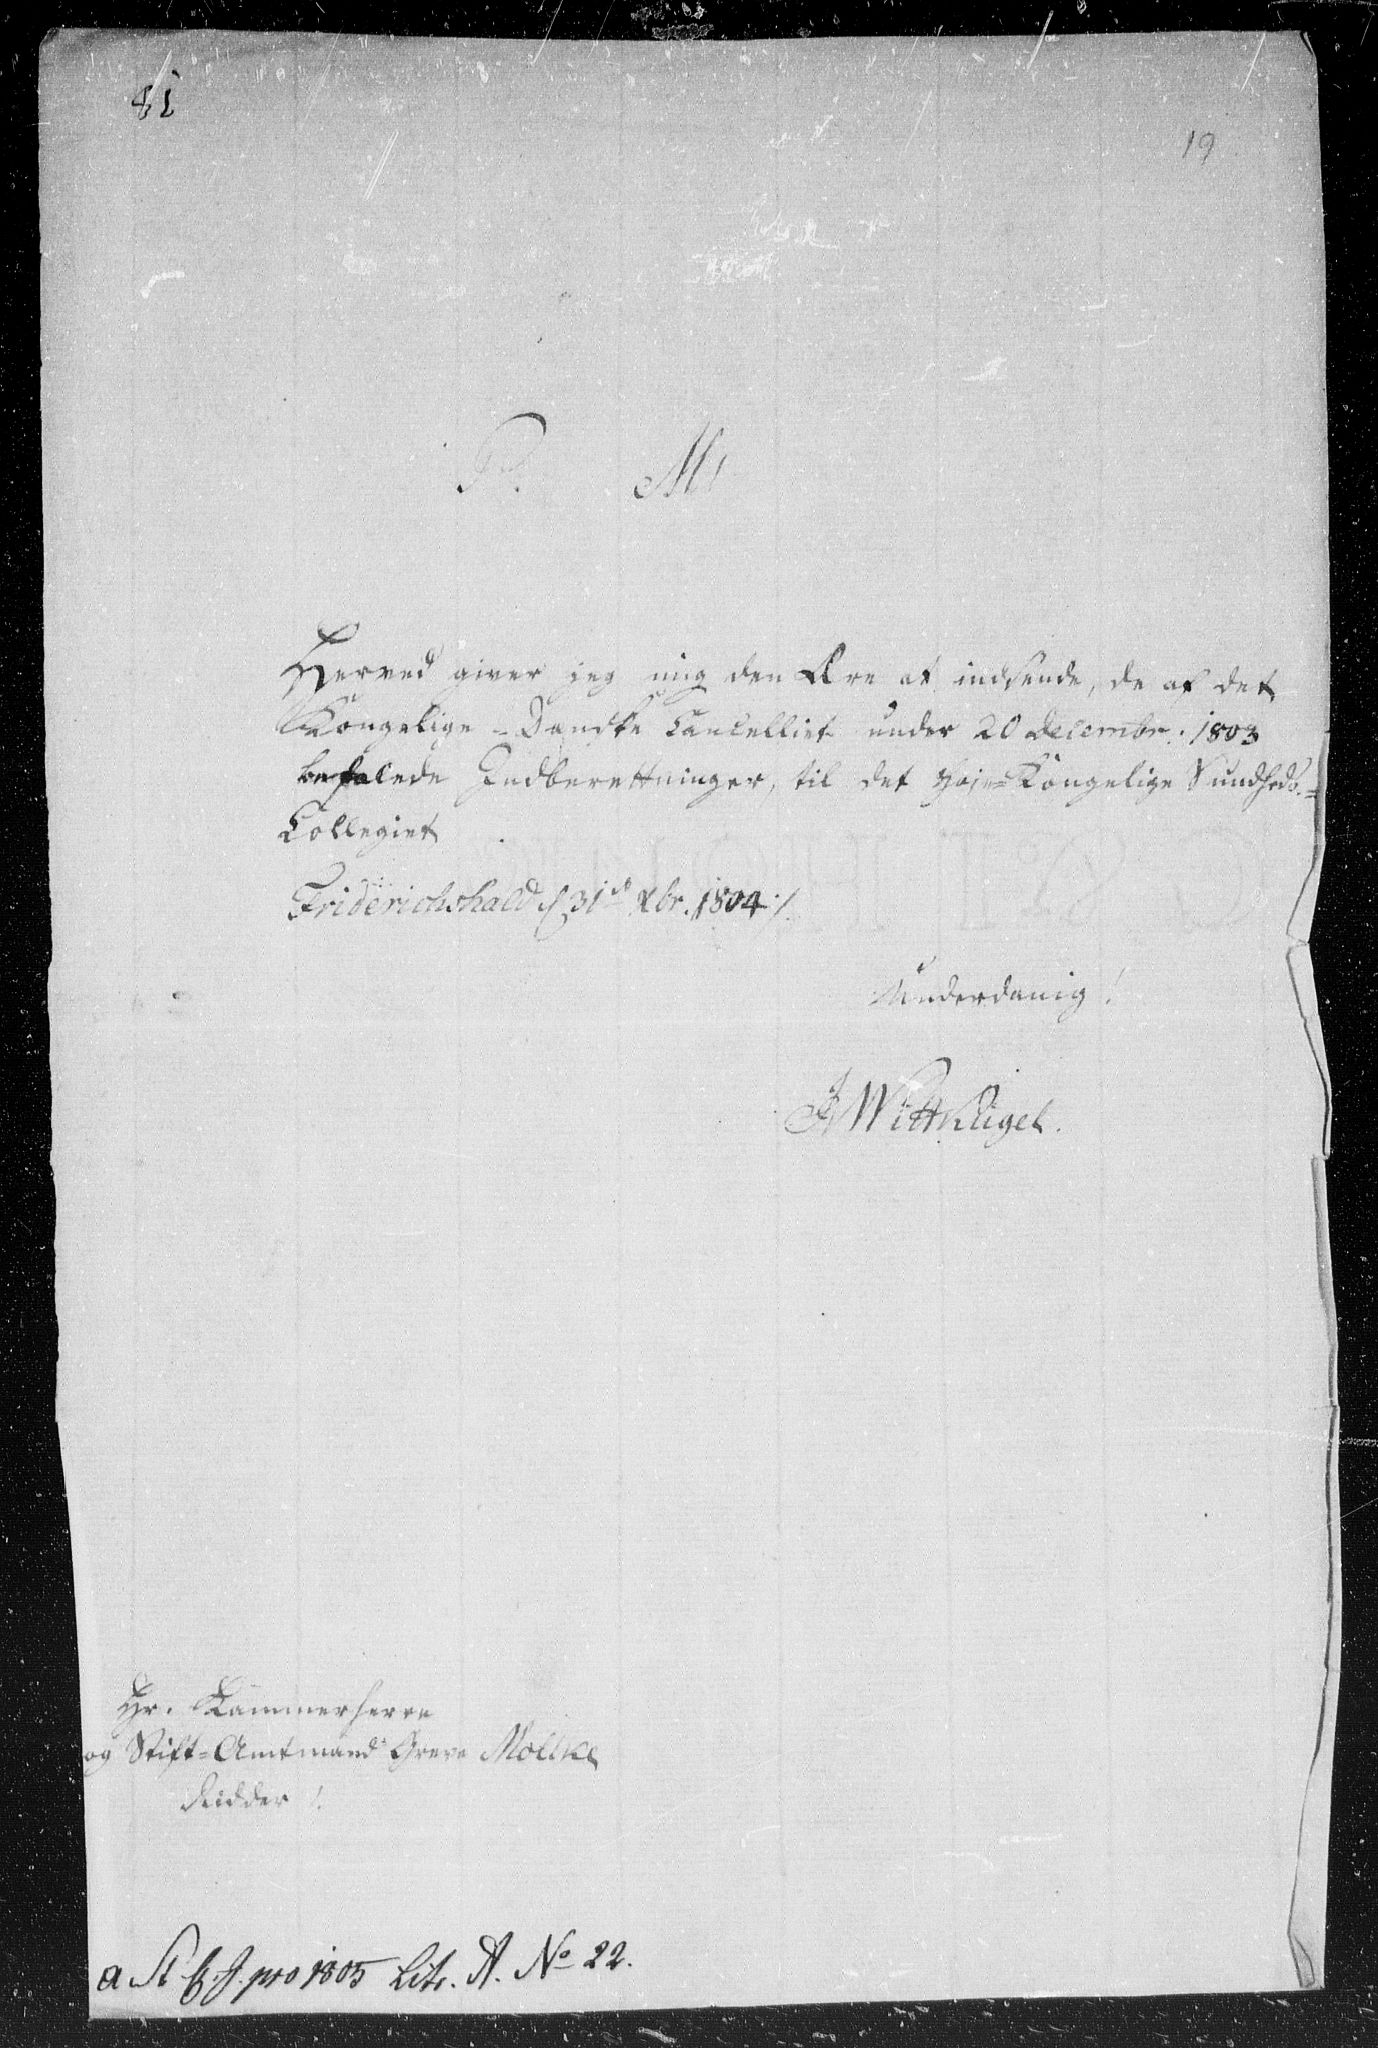 81
19
P. M.
Herved giver jeg mig den Ære at indsende, de af det
Kongelige-Danske Cancelliet under 20 Decembr: 1803
befalede Indberettninger, til det høje-Kongelige Sundheds-
Collegiet
Friderichshald d 31te Xbr. 1804 ./.
Underdanig!
Hr. Kammerherre
og Stift-Amtmand Greve Moltke
Ridder!
a St. pro 1805 Litr. A. No 22.